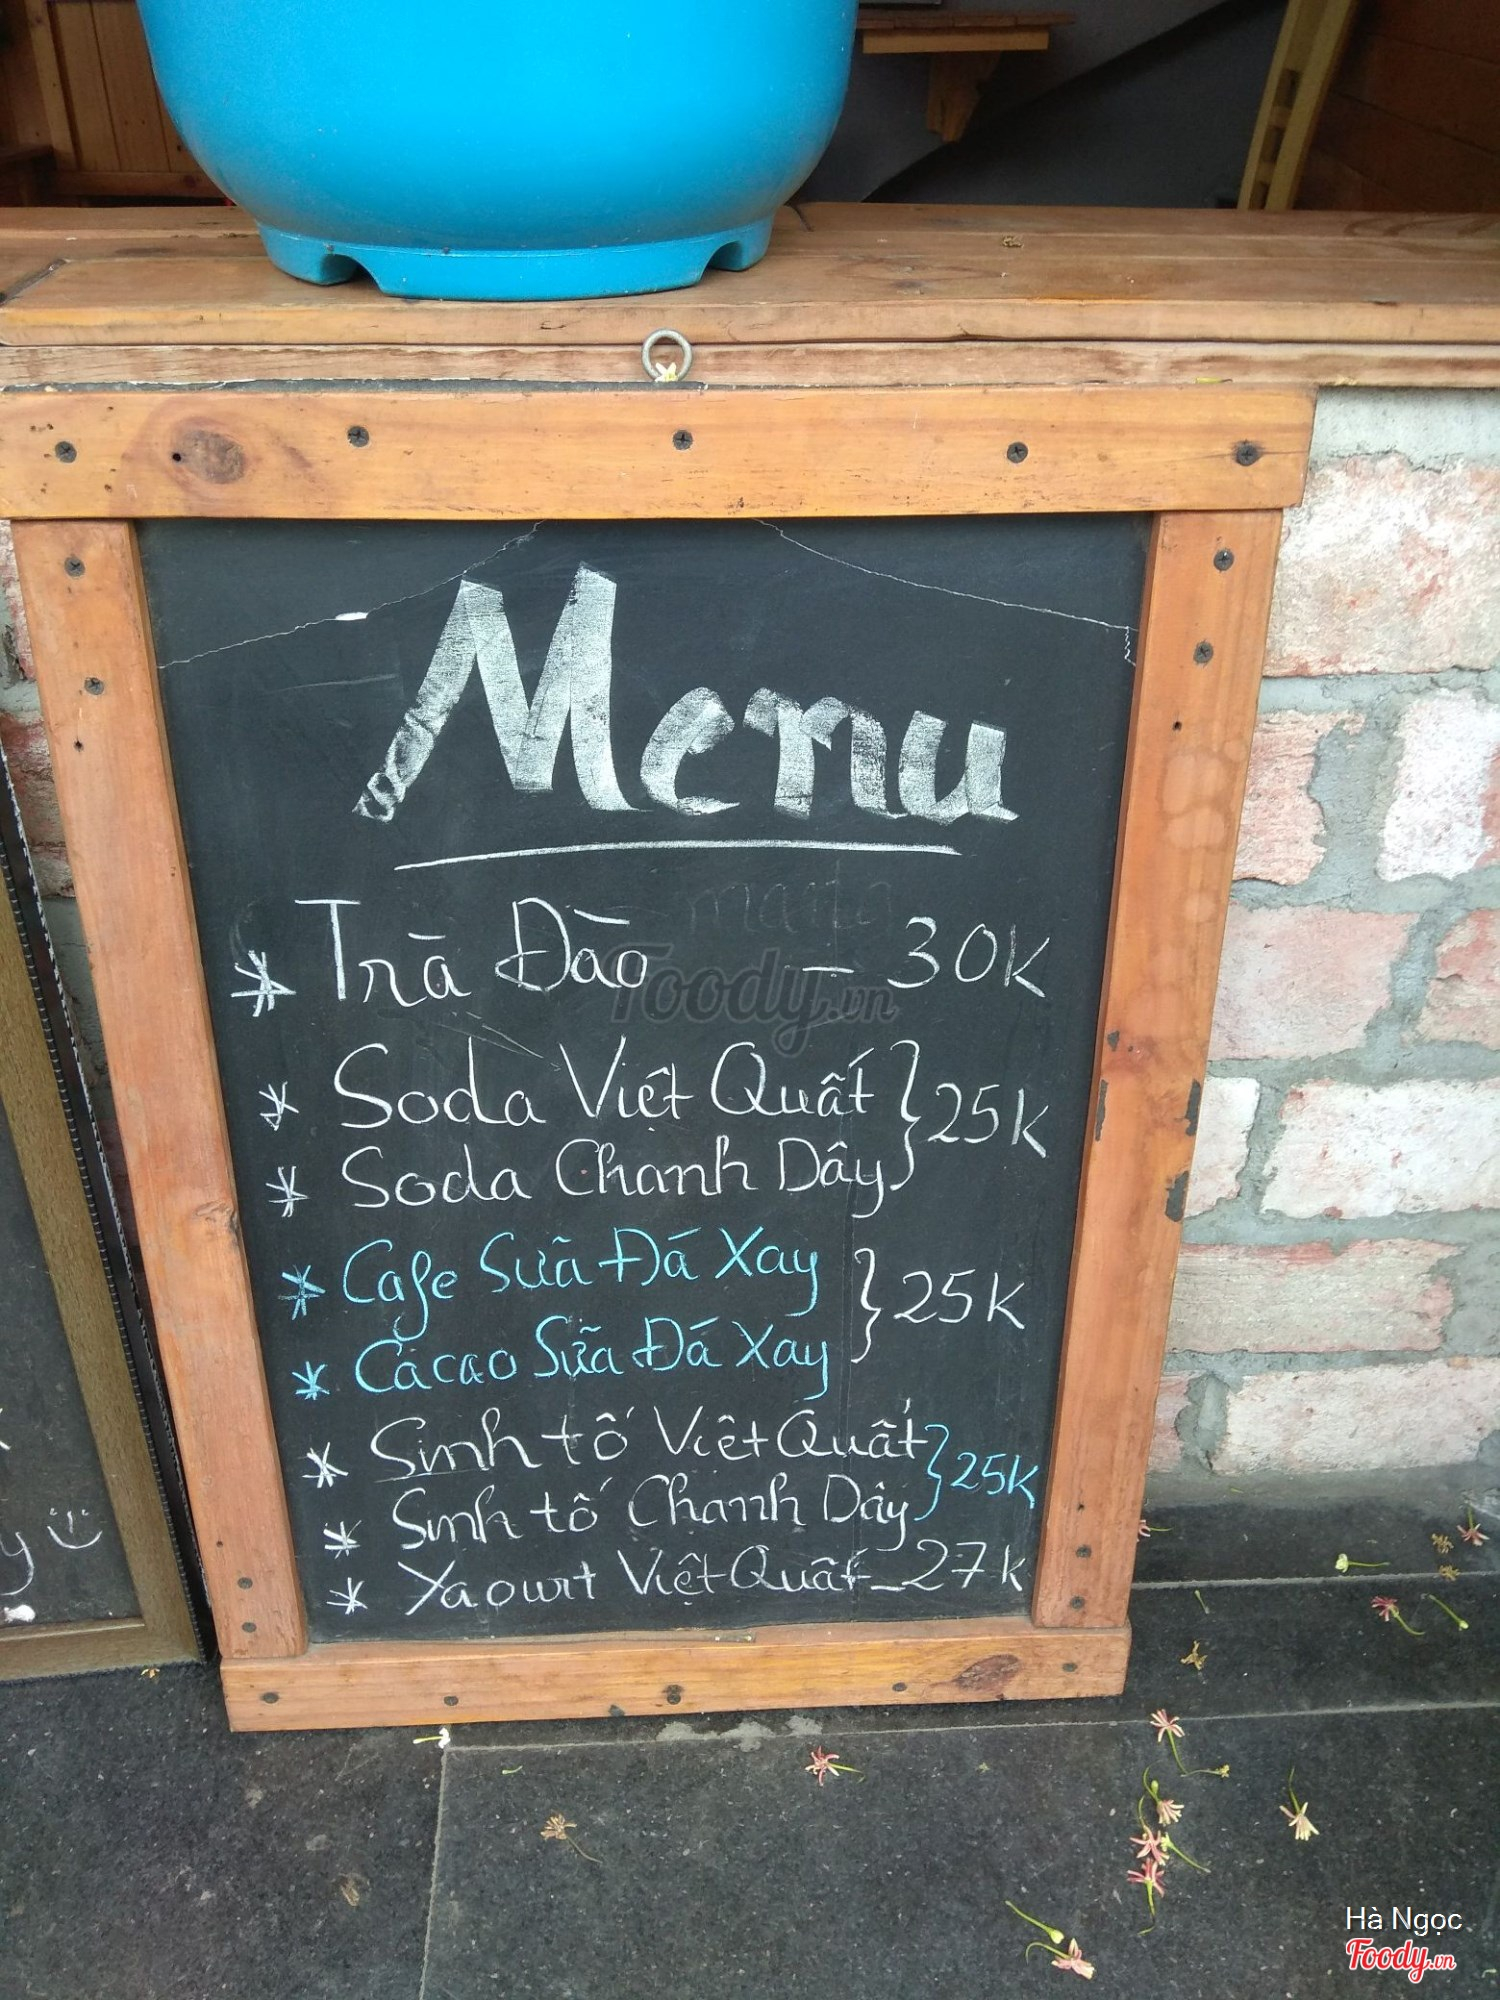 Menu
* Trà Đào — 30K
* Soda Việt Quất } 25K
* Soda Chanh Dây
* Cafe Sữa Đá Xay } 25K
* Cacao Sữa Đá Xay
* Sinh tố Việt Quất } 25K
* Sinh tố Chanh Dây
* Yaourt Việt Quất - 27K
Foody.vn
Hà Ngọc
Foody.vn